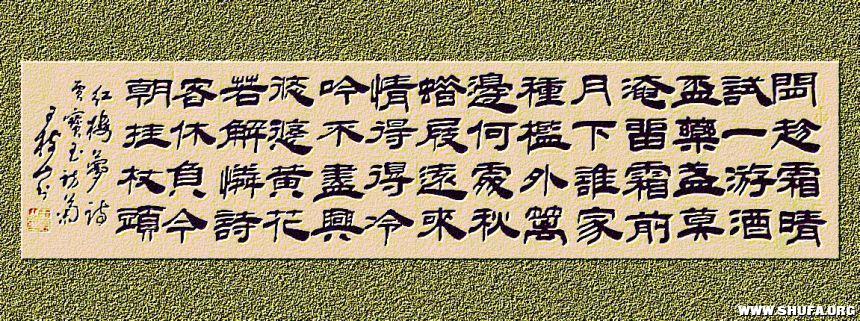 閒趁霜晴
試一游酒
盃藥盞莫
淹畱霜前
月下誰家
種檻外篱
邊何處秋
蜡屐遠來
情得得冷
吟不盡興
悠悠黄花
若解憐詩
客休負今
朝挂杖頭
红楼夢诗
賈寶玉訪菊
WWW.SHUFA.ORG